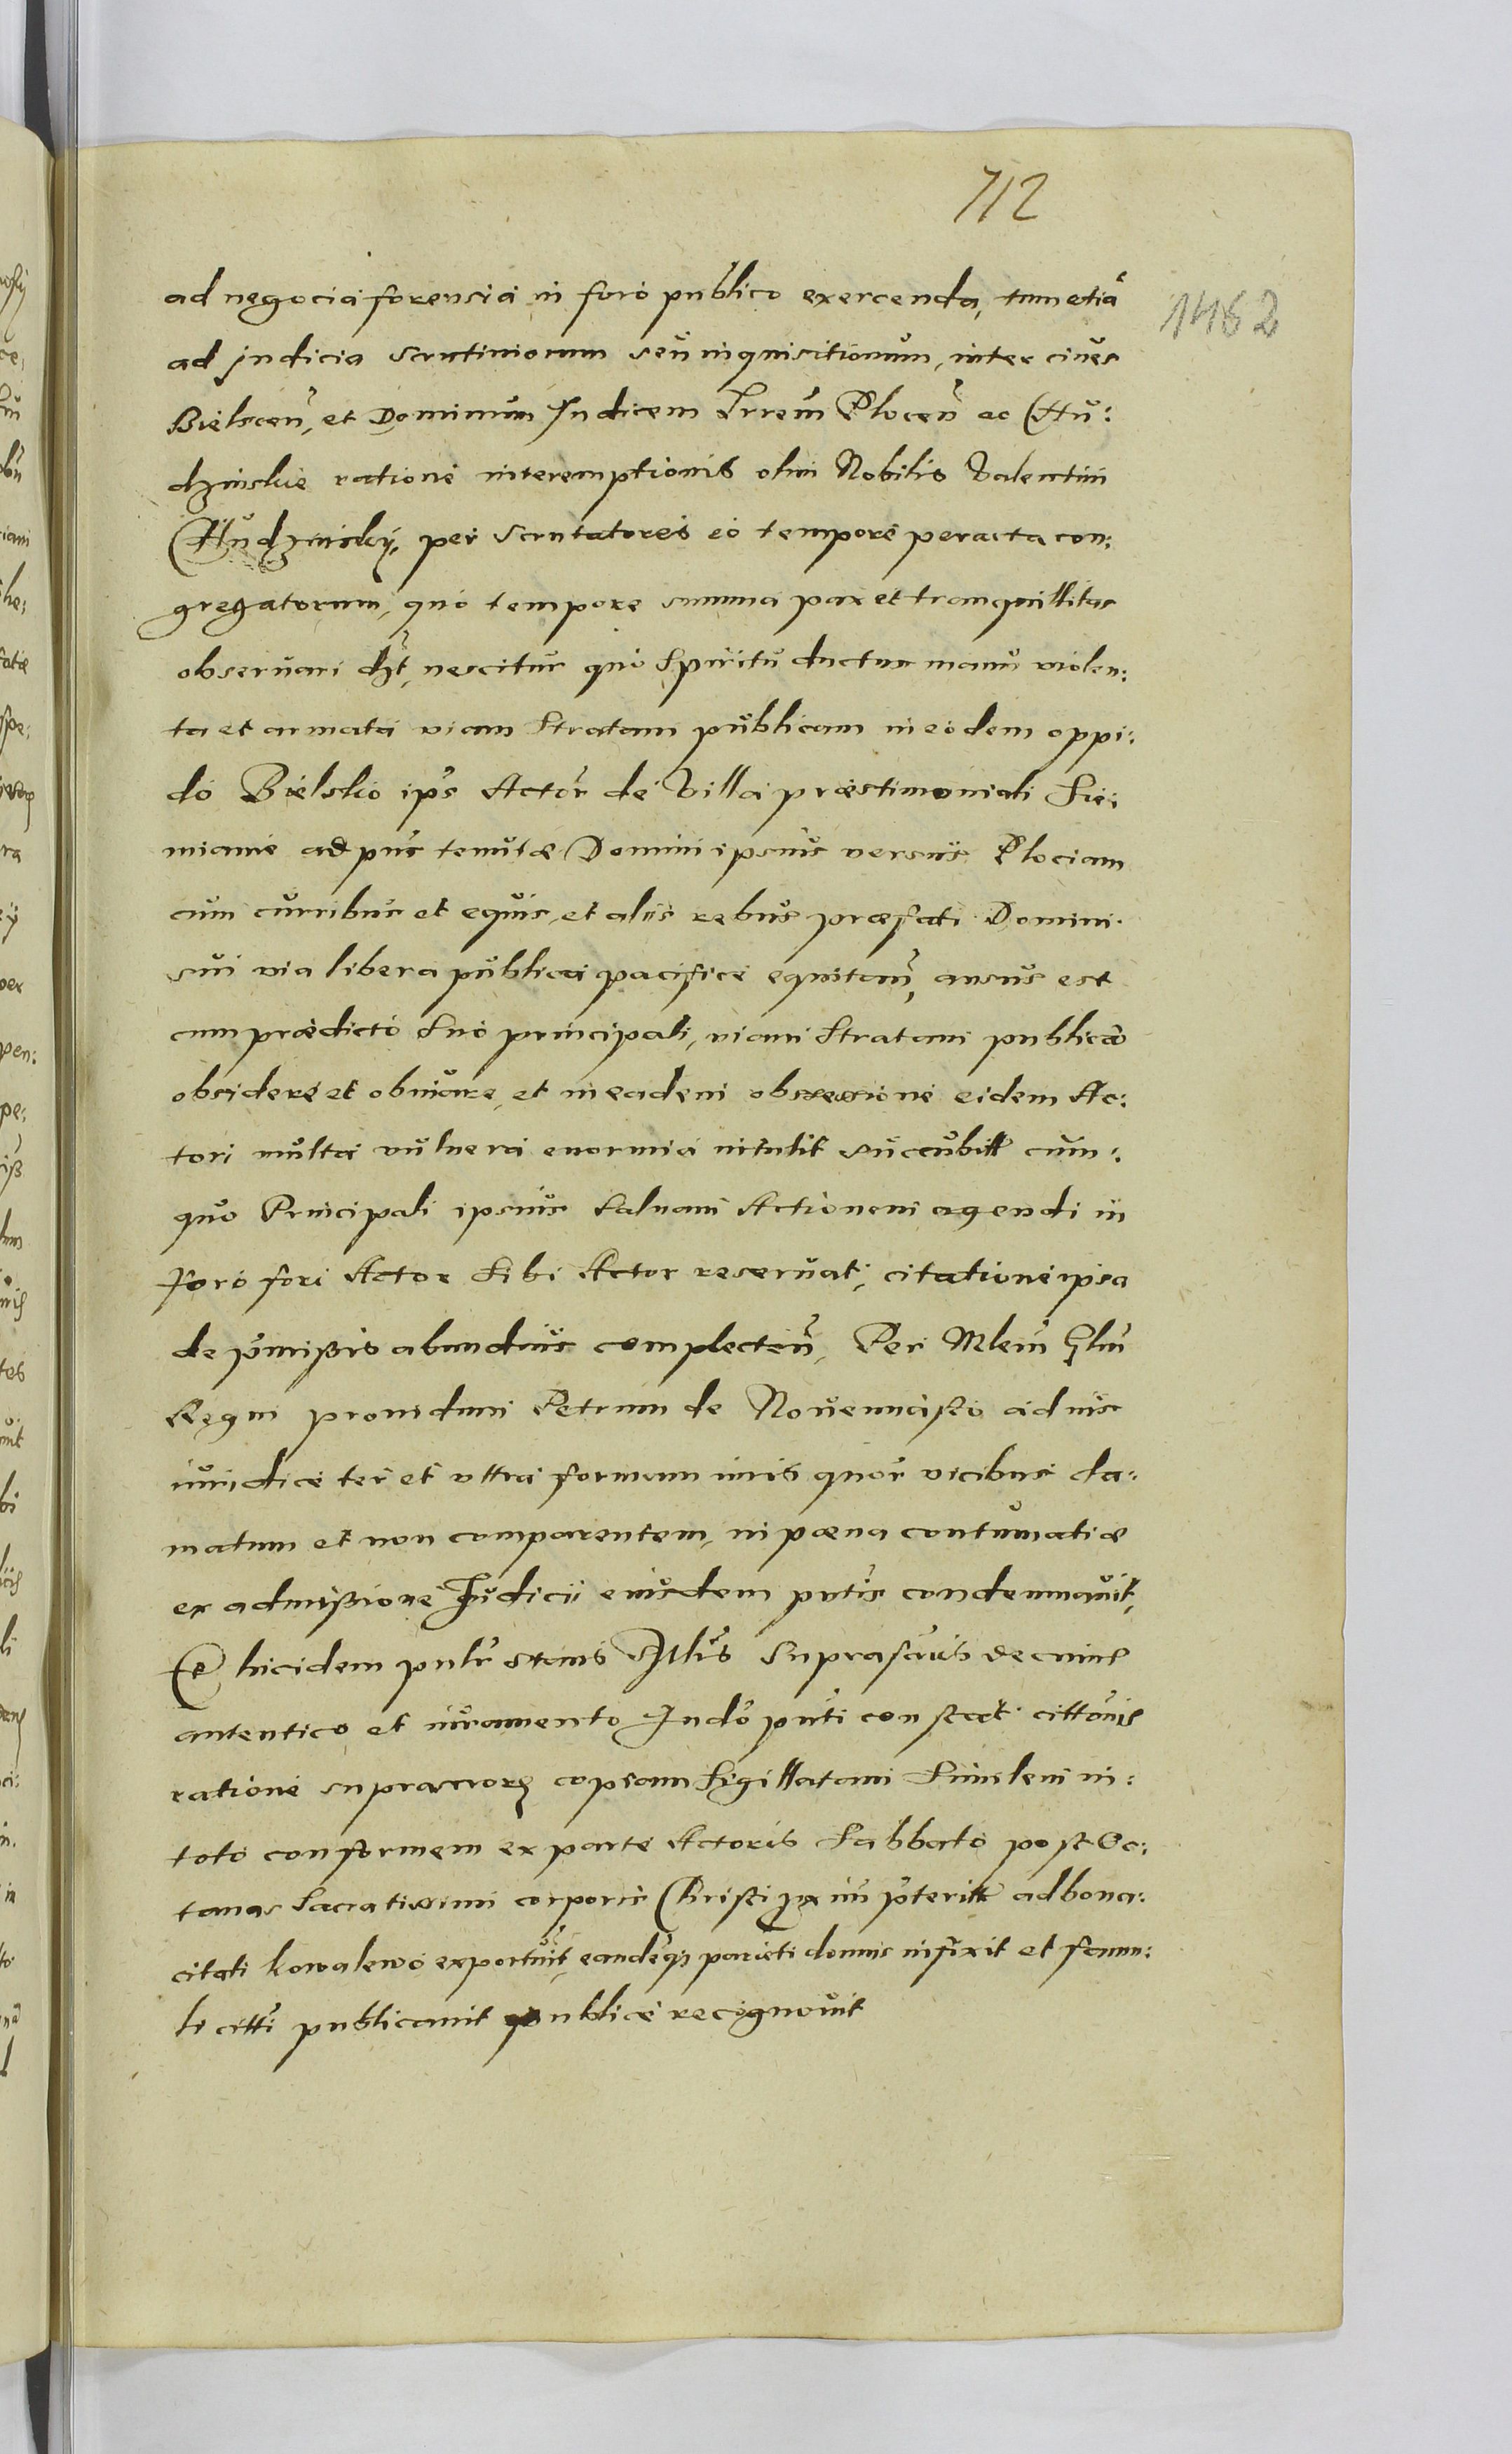 712
1462
ad negocia forensia in foro publico exercenda, tum etiã
ad judicia scrutiniorum seu inquisitionum, inter cives
Bielscen̄, et Dominum Judicem Trrem̄ Plocen̄ ac Chu:
dzinskie ratione interemptionis olim Nobilis Valentini
Chudzinskij, per scrutatores eo tempore peracta con:
gregatorum, quo tempore summa pax et tranquillitas
observari dẞt, nescitur quo spiritu ductus manu violen:
ta et armata viam stratam publicam in eodem oppi:
do Bielsko ips̄ Actor̄ de villa præstimoniali
ad pns̄ tenutæ Domini ipsius versus Plociam
cum curribus et equis, et aliis rebus præfati Domini
sui via libera publica pacifice equitan̄, ausus est
cum prædicto suo principali, viam stratam publicã
obsidere et obviare, et in eadem obsessione eidem Ac:
tori multa vulnera enormia intulit succubitt cum:
quo Principali ipsius salvam Actionem agendi in
foro fori Actor sibi Actor reservat, citatione ipsa
de p̄missis abundius complecten̄, Per Mlem̄ Glm̄
Regni providum Petrum de Novemiasto
iuridice ter et ultra formam iuris quar̄ vicibus cla:
matum et non comparentem, in pœna contumatiæ
ex admissione Judicii eiusdem pntis̄ condemnavit,
Et hicidem pntr̄ stans Mlis̄ suprascris̄ de cuius
autentico et iuramento Judō pnti constat citton̄is
ratione copiam sigillatam similem in:
toto conformem ex parte Actoris Sabbato post Oc:
tavas Sacratissimi corporis Christi px̄ im̄ p̄teritt ad bona:
citati Kowalewo exportavit, eandēq3 parieti domus infixit et famu:
li citti publicavit publice recognovit